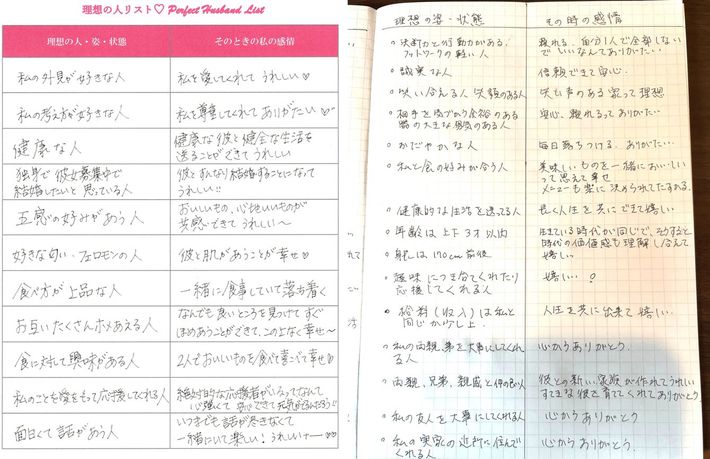 理想の人リスト♡ Perfect Husband List
理想の人・姿・状態
そのときの私の感情
私の外見が好きな人
私を愛してくれて うれしい♡
私の考え方が好きな人
私を尊重してくれて ありがたい
健康な人
健康な彼と健全な生活を
送ることができて うれしい
独身で 彼女募集中で
結婚したいと 思っている人
彼とすんなり結婚することになって
うれしい
五感の好みがあう人
おいしいもの、心地いいものが
共感できてうれしい〜
好きな匂い・フェロモンの人
彼と肌があうことが幸せ♡
食べ方が上品な人
一緒に食事していて落ち着く
お互いたくさんホメあえる人
なんでも良いところを見つけて すぐ
ほめあうことができて、この上なく幸せ〜
食に対して興味がある人
2人でおいしいものを食べて喜こべて幸せ♡
私のことを愛をもって応援してくれる人
絶対的な応援者がいるってなんて
心強くて 安心できて
面白くて話があう人
いつまでも話が尽きなくて
一緒にいて楽しい！うれしいナー♡
理想の姿・状態
その時の感情
決断力と行動力がある、
フットワークの軽い人
頼れる、自分1人で全部しない
でいいなんてありがたい…
誠実な人
信頼できて安心
笑い合える人 笑顔のある人
笑い声のある家って理想
相手を気づかう余裕のある
器の大きな勇気のある人
安心、頼れるってありがた…
おだやかな人
毎日落ちつける、ありがたい…
私と食の好みが合う人
美味しいものを一緒においしい
って思えて幸せ
メニューも楽に決められてたすかる。
健康的な生活を送ってる人
長く人生を共にできて嬉しい
年齢は上下3才以内
生きている時代が同じで、そうすると
時代の価値感も理解し合えて
嬉しい
身長は170cm前後
趣味につき合てくれたり
応援してくれる人
嬉しい… ?
給料(収入)は私と
同じか少し上
人生を共に出来て嬉しい
私の両親、弟を大事にしてくれ
る人
心からありがとう
両親、兄弟、親戚と仲の良い人
彼との新しい家族が作れてうれしい
すてきな彼を育ててくれてありがとう
私の友人を大事にしてくれる人
心から ありがとう
私の実家の近所に住んで
くれる人
心から ありがとう。